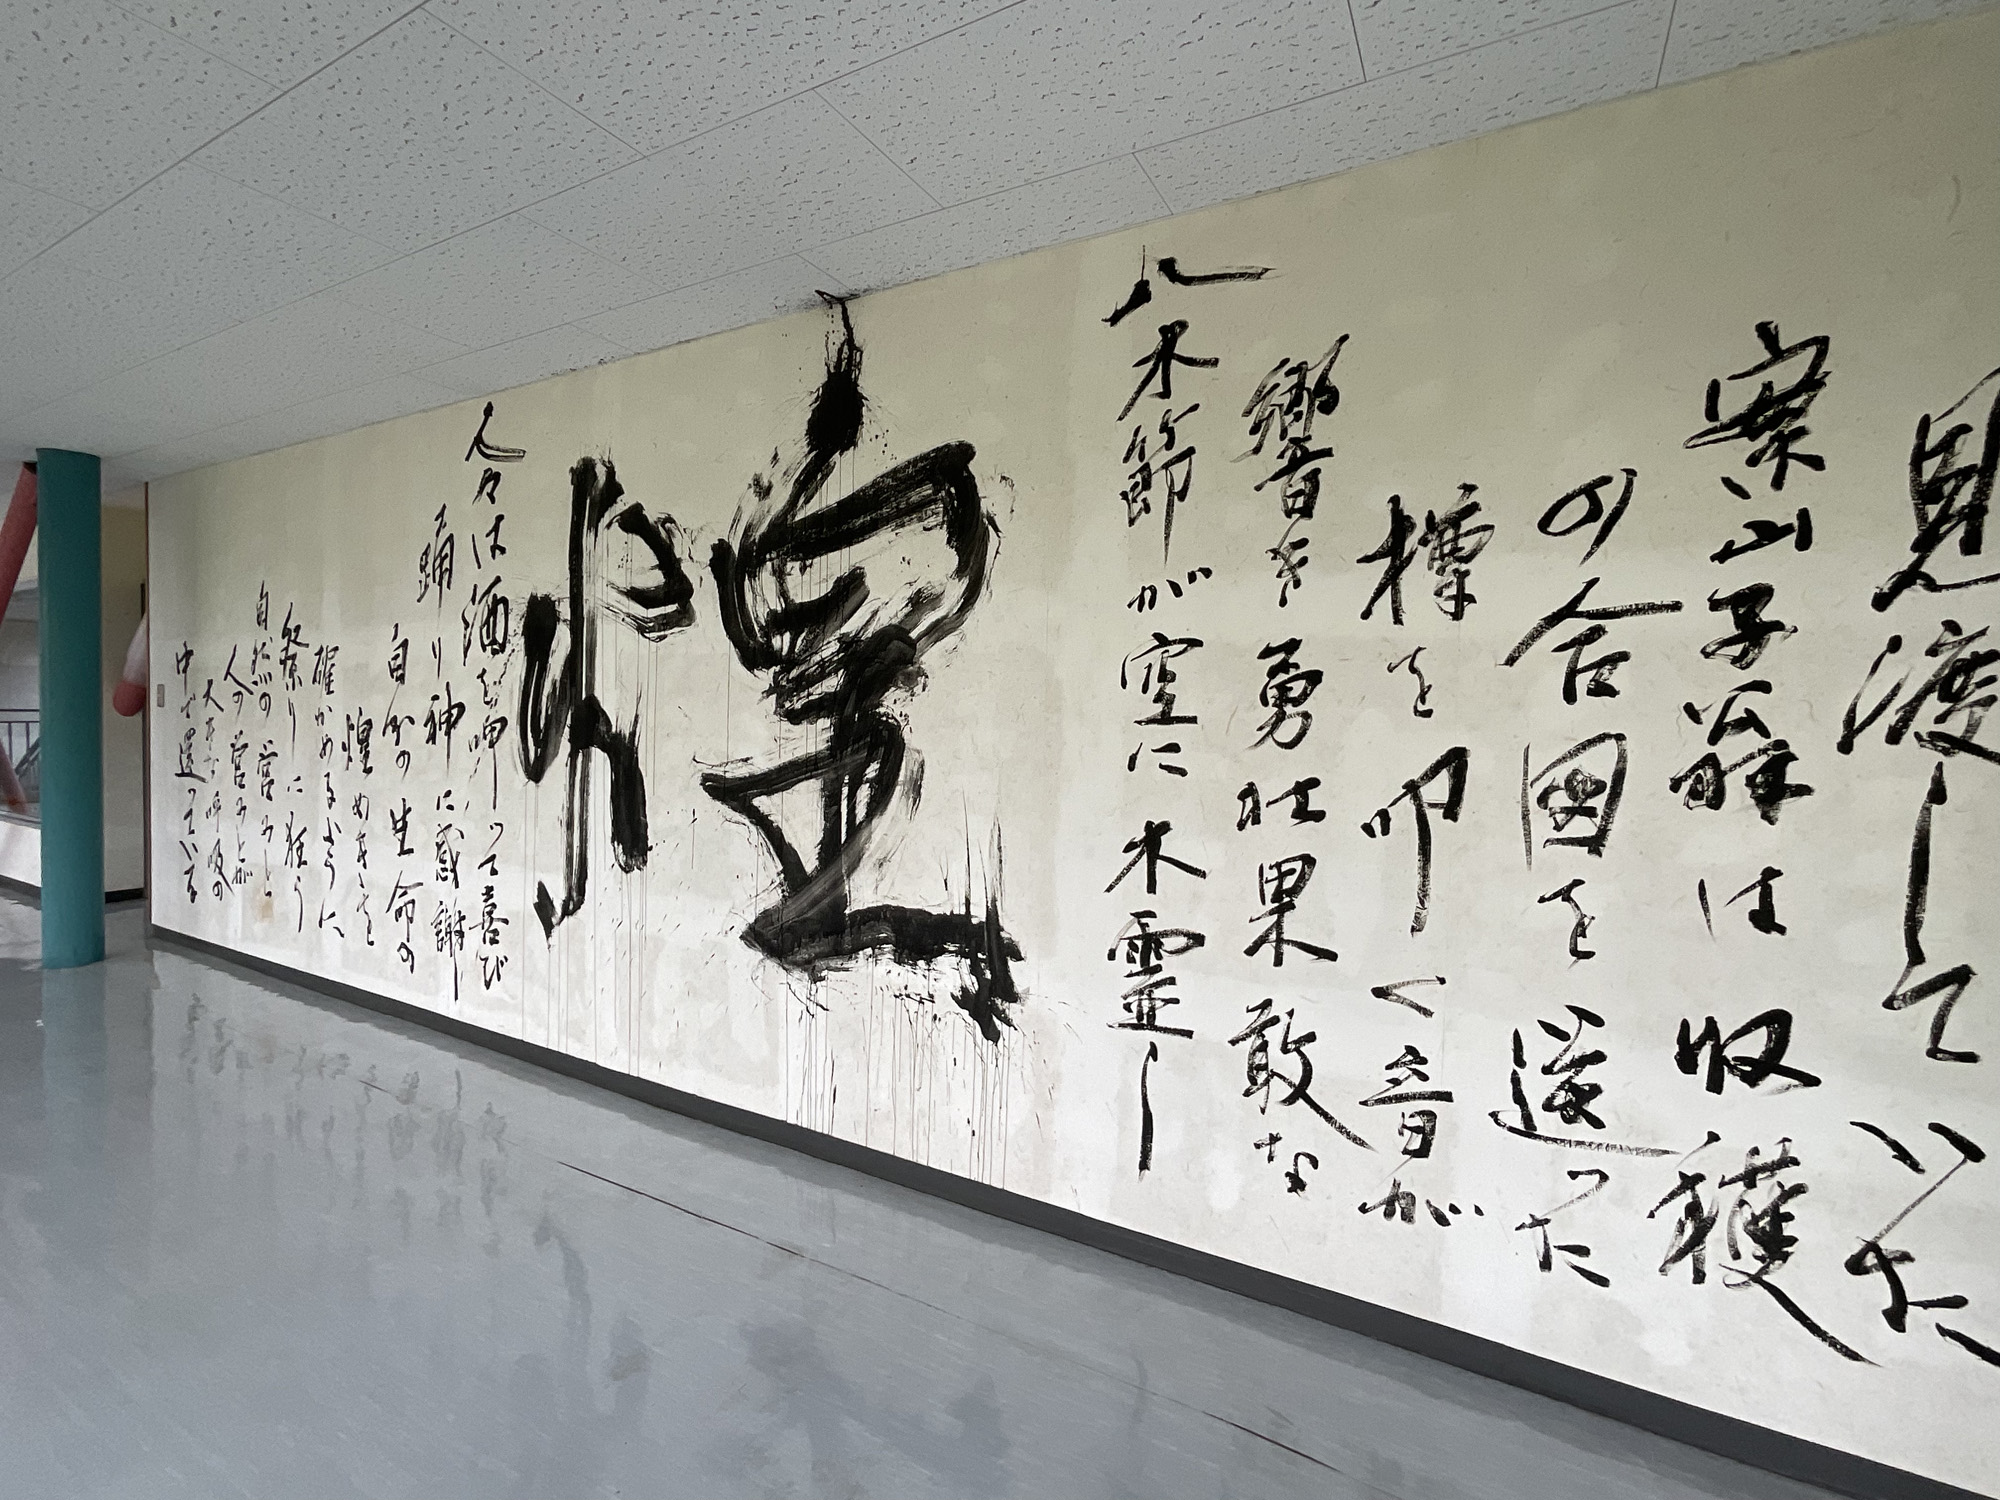 見渡していた
案山子翁は収穫
の合図を送った
樽を叩く音が
響き勇壮果敢な
八木節が空に木霊し
煌
人々は酒を呷って喜び
踊り神に感謝し
自分の生命の
煌めきを
確かめるように
祭りに狂う
自然の営みと
人の営みとが
大きな呼吸の
中で還っている